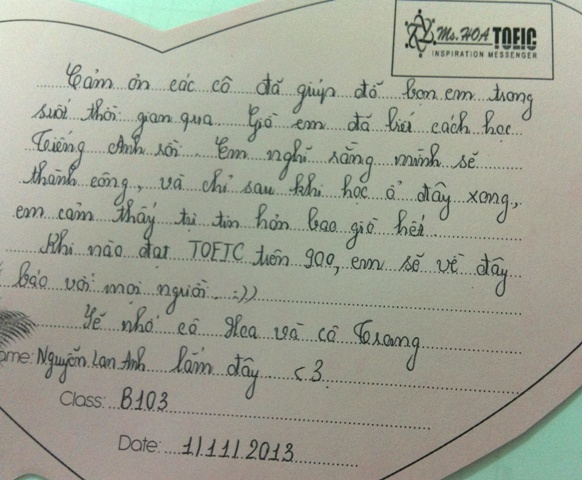 Ms. HOA TOEIC
INSPIRATION MESSENGER
Cảm ơn các cô đã giúp đỡ bọn em trong
suốt thời gian qua. Giờ em đã biết cách học
Tiếng Anh rồi. Em nghĩ rằng mình sẽ
thành công, và chỉ sau khi học ở đây xong,
em cảm thấy tự tin hơn bao giờ hết.
Khi nào đạt TOEIC trên 900, em sẽ về đây
báo với mọi người. =))
Sẽ nhớ cô Hoa và cô Trang
ame: Nguyễn Lan Anh lắm đấy <3
Class: B103
Date: 1/11/2013